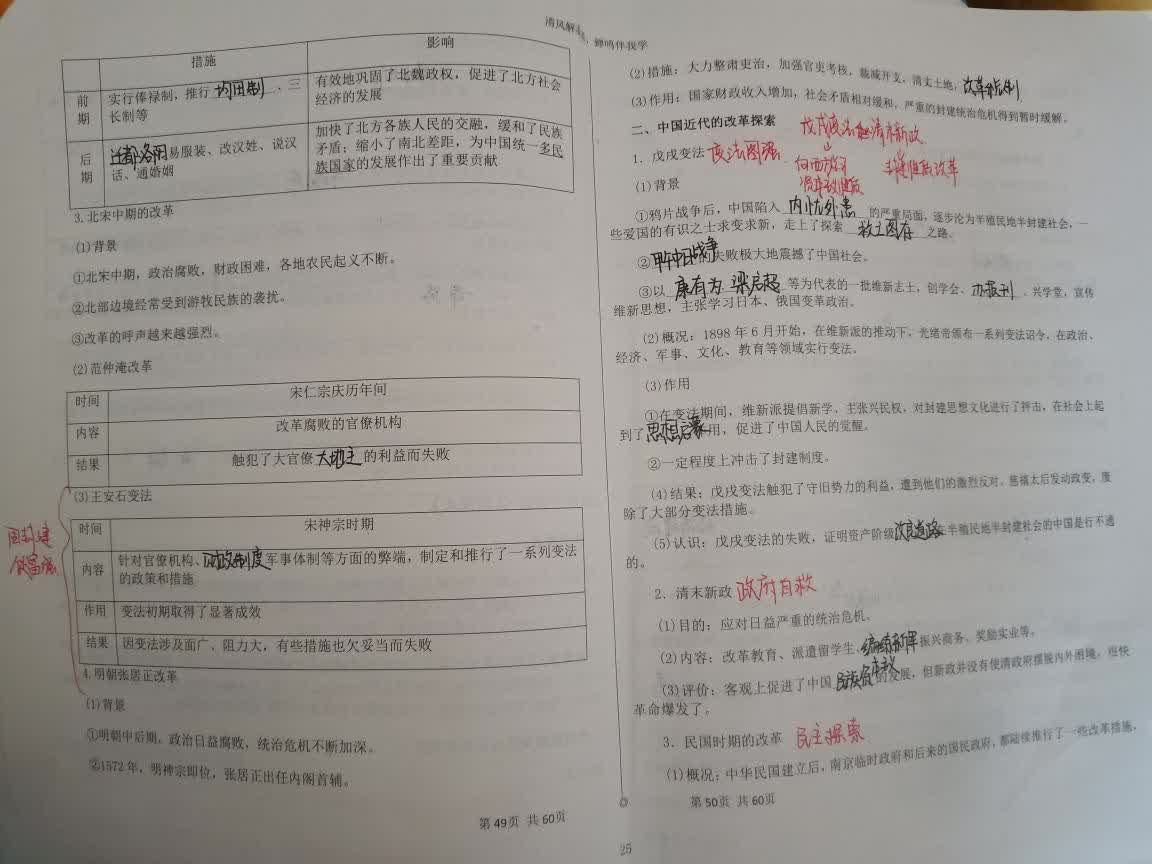 清风解，蝉鸣伴我学
措施 影响
前期 实行俸禄制，推行 均田制 、三长制等 有效地巩固了北魏政权，促进了北方社会经济的发展
后期 迁都洛阳 易服装、改汉姓、说汉话、通婚姻 加快了北方各族人民的交融，缓和了民族矛盾；缩小了南北差距，为中国统一多民族国家的发展作出了重要贡献
3.北宋中期的改革
(1)背景
①北宋中期，政治腐败，财政困难，各地农民起义不断。
②北部边境经常受到游牧民族的袭扰。
③改革的呼声越来越强烈。
(2)范仲淹改革
时间 宋仁宗庆历年间
内容 改革腐败的官僚机构
结果 触犯了大官僚 大地主 的利益而失败
(3)王安石变法
时间 宋神宗时期
内容 针对官僚机构、财政制度 军事体制等方面的弊端，制定和推行了一系列变法
的政策和措施
作用 变法初期取得了显著成效
结果 因变法涉及面广、阻力大，有些措施也欠妥当而失败
4.明朝张居正改革
(1)背景
①明朝中后期，政治日益腐败，统治危机不断加深。
②1572 年，明神宗即位，张居正出任内阁首辅。
第 49页 共 60页
(2)措施：大力整肃吏治，加强官吏考核，裁减开支，清丈土地，改革税制
(3)作用：国家财政收入增加，社会矛盾相对缓和，严重的封建统治危机得到暂时缓解。
二、中国近代的改革探索
戊戌变法 清末新政
1．戊戌变法 变法图强
(1)背景
①鸦片战争后，中国陷入 内忧外患 的严重局面，逐步沦为半殖民地半封建社会，一
些爱国的有识之士求变求新，走上了探索 救亡图存 之路。
②甲午中日战争的失败极大地震撼了中国社会。
③以 康有为 梁启超 等为代表的一批维新志士，创学会、办报刊 、兴学堂，宣传
维新思想，主张学习日本、俄国变革政治。
(2)概况：1898 年 6 月开始，在维新派的推动下，光绪帝颁布一系列变法诏令，在政治、
经济、军事、文化、教育等领域实行变法。
(3)作用
①在变法期间，维新派提倡新学，主张兴民权，对封建思想文化进行了抨击，在社会上起
到了思想启蒙用，促进了中国人民的觉醒。
②一定程度上冲击了封建制度。
(4)结果：戊戌变法触犯了守旧势力的利益，遭到他们的激烈反对。慈禧太后发动政变，废
除了大部分变法措施。
(5)认识：戊戌变法的失败，证明资产阶级改良道路在半殖民地半封建社会的中国是行不通
的。
2．清末新政 政府自救
(1)目的：应对日益严重的统治危机。
(2)内容：改革教育、派遣留学生、编练新军 振兴商务、奖励实业等。
(3)评价：客观上促进了中国 民族资本主义 的发展，但新政并没有使清政府摆脱内外困境，很快
革命爆发了。
3．民国时期的改革 民主探索
(1)概况：中华民国建立后，南京临时政府和后来的国民政府，都陆续推行了一些改革措施，
第 50页 共 60页
25